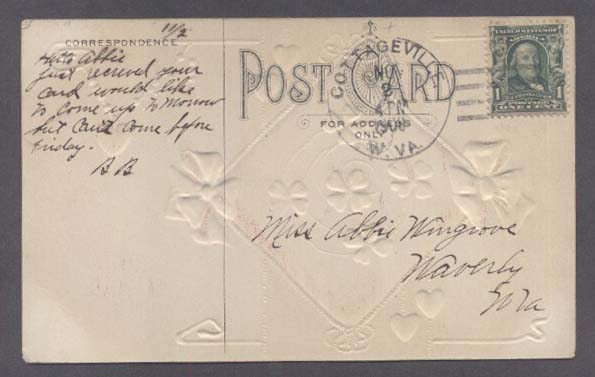 11/2
CORRESPONDENCE
Hello Abbie
Just received your
card would like
to come up to morrow
but can't come before
Friday.
B B
POST CARD
FOR ADDRESS
ONLY
COTTAGEVILLE
NO
2
W. VA.
UNITED STATES OF AMERICA
1 1
POSTAGE ONE CENT
Miss Abbie Wingrove
Waverly
W Va